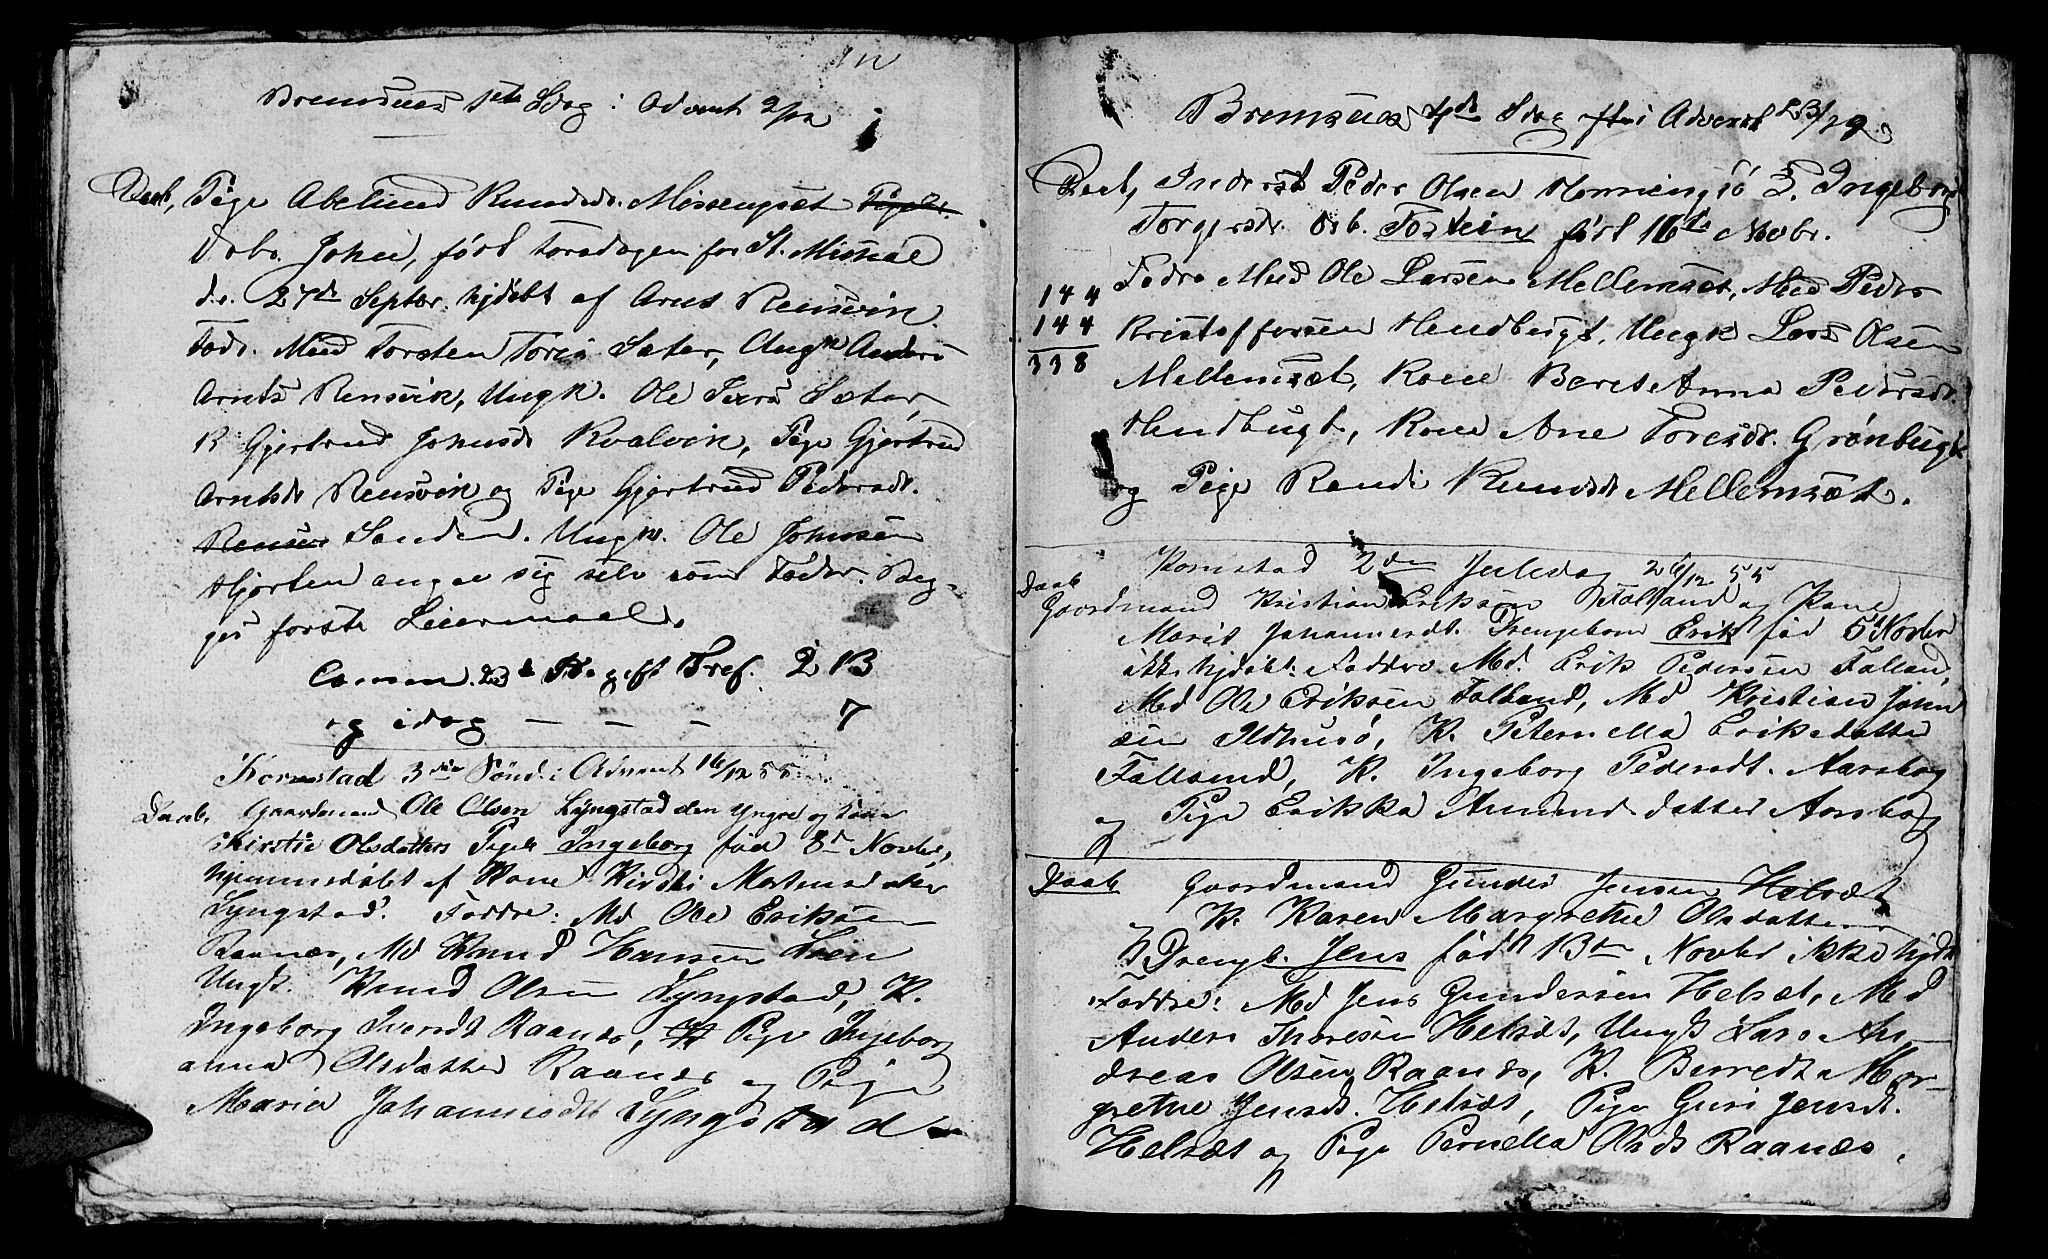 Bremsnes 1ste Sdag i Advent 2/12
Daab, Pige Abelund Knudsd. Missengsæt Pigeb.
D. ebo. John, født Torsdagen for St. Michael
d.e. 27de Septbr. hjdøbt af Arnt Rensvik.
Fadr. Mand Torsten Tores Sæter, Ungk Anders
Arnts Rensvik, Ungk. Ole Ivers Sæter,
K Gjertrud Johnsd. Kvalvik, Pige Gjertrud
Arntsdr Rensvik og Pige Gjertrud Pedersdr.
Rensvi Sanden. Ungk. Ole Johnsen
Hjorten angav sig selv som Fader. Beg-
ges første Leiermaal.
Comm. 23de S. e. Tref. 2 13
og idag — — — 7
Kornstad 3die Sønd. i Advent 16/12 55
Daab, Gaardmand Ole Olsen Lyngstad den Yngre og Kone
Kirstie Olsdatters Pigeb Ingeborg fød 8de Novbr,
hjemmedøbt af Kone Kirsti Mortensdatter
Lyngstad. Faddre: Md Ole Eriksen
Raanæs, Md Knud Hansen Lien
Ungk. Knud Olsen Lyngstad, K.
Ingeborg Iversdt Raanæs, K Pige Ingeborg
anna Olsdatter Raanæs og Pige
Maria Johannesdt Lyngstad
Bremsnes 4de Sdag efter i Advent 23/12
Daab, Inderst Peder Olsen Henningsø & Ingeborg
Torgersdr. Drb. Tostein født 16de Novbr.
Fadre Mand Ole Larsen Mellemsæt, Mand Peder
144
144 Kristoffersen Hendbugt, Ungk Lars Olsen
338
Mellemsæt, Kone Beret Anna Pedersdr
Hendbugt, Kone Ane Toresdr. Grønbugt
og Pige Randi Knudsdr Mellemsæt.
Kornstad 2den Juledag 26/12 55
Daab
Gaardmand Kristian Eriksen Folland og Kone
Marit Johannesdt. Drengebarn Erik fød 5te Novbr
ikke hjdøbt. Faddre Md. Erik Pedersen Folland,
Md Ole Eriksen Folland, Md Kristian John
sen Ildhusø, K. Peternella Eriksdatter
Folland, K. Ingeborg Pedersdt. Aarsbog
og Pige Erikka Amunddatter Aarsbog
Daab Gaardmand Gunder Jensen Helsæt
K. Karen Margrethe Olsdatter
Drengb. Jens fød 13de Novbr ikke hjdt
Faddre: Md Jens Gundersen Helsæt, Md
Anders Thoresen Helsæt, Ungk Lars An-
dreas Olsen Raanæs, K. Beredt Mar-
grethe Jensdt. Helsæt, Pige Guri Jensdt.
Helsæt og Pige Pernella Olsdt Raanæs.